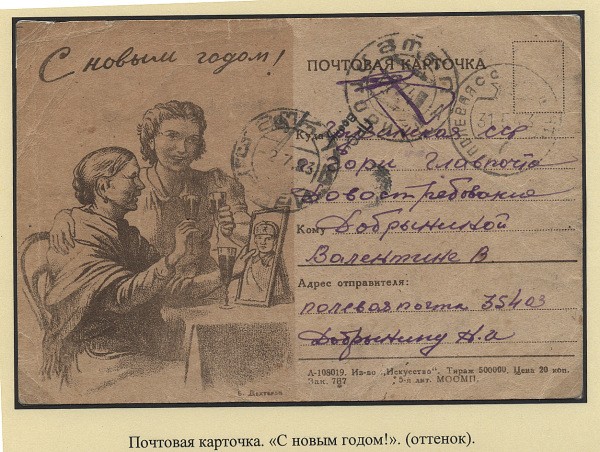 С новым годом!
ПОЧТОВАЯ КАРТОЧКА
Куда Грузинская сср
Гори Главпочта
Довостребования
Кому Добрыниной
Валентине В.
Адрес отправителя:
полевая почта 35403
Добрынину Н.А
А-108019. Из-во „Искусство". Тираж 500000. Цена 20 коп.
Зак. 767 5-я лит. МООМП.
Почтовая карточка. «С новым годом!». (оттенок).